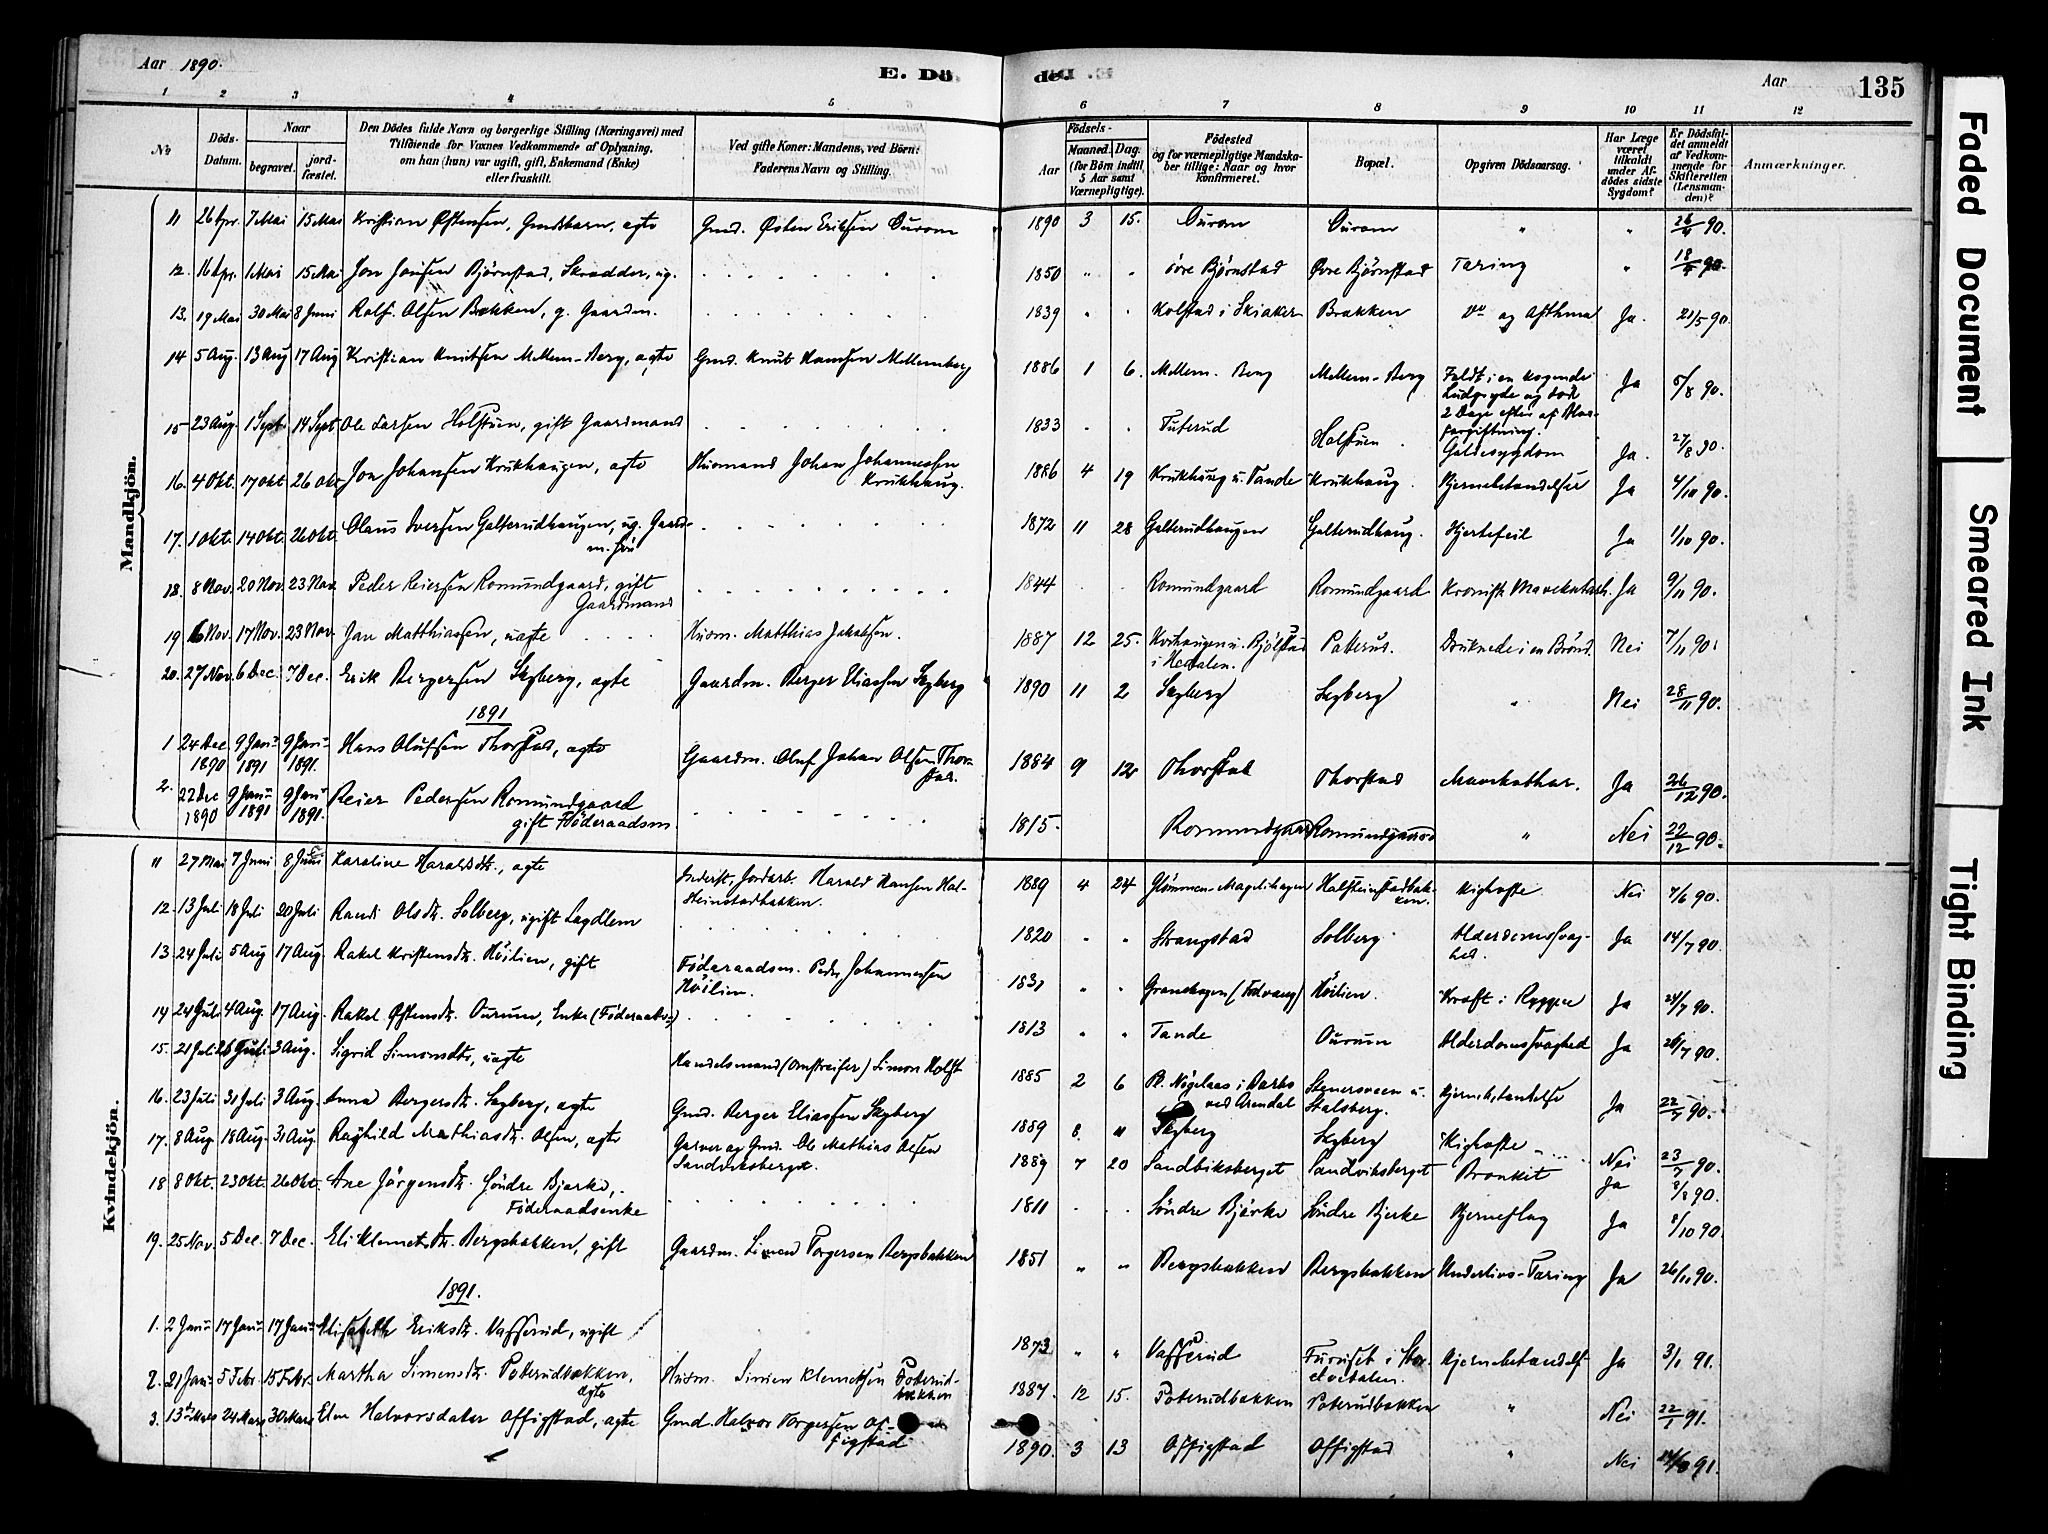 Aar 1890.
E. Dö
de.
Aar
135
1 2 3 4 5 6 7 8 9 10 11 12
No
Döds-Datum.
Naar
begravet.
jordfæstet.
Den Dödes fulde Navn og borgerlige Stilling (Næringsvei) med
Tilföiende for Voxnes Vedkommende af Oplysning,
om han (hun) var ugift, gift, Enkemand (Enke)
eller fraskilt.
Ved gifte Koner: Mandens, ved Börn:
Faderens Navn og Stilling.
Födsels-
Aar
Maaned. Dag.
(for Börn indtil
5 Aar samt
Værnepligtige).
Födested
og for værnepligtige Mandska-
ber tillige: Naar og hvor
konfirmeret.
Bopæl.
Opgiven Dödsaarsag.
Har Læge
været
tilkaldt
under Af-
dödes sidste
Sygdom?
Er Dödsfal-
det anmeldt
af Vedkom-
mende for
Skifteretten
(Lensman-
den)?
Anmærkninger.
Mandkjön.
11 26 Apr. 7 Mai 15 Mai Kristian Østensen, Gmdsbarn, ægte Gmd. Østen Eriksen Ourom 1890 3 15. Ourom Ourom " " 26/4 90.
12. 16 Apr. 1 Mai 15 Mai Jon Jonsen Bjørnstad, Skrædder, ug. 1850 " " övre Bjørnstad Øvre Bjørnstad Tæring " 18/4 90.
13. 19 Mai 30 Mai 8 Juni Rolf Olsen Bakken, g. Gaardm. 1839 " " Kolstad i Skiaker Brækken Do og Asthma Ja. 21/5 90.
14 5 Aug. 13 Aug 17 Aug Kristian Knutsen Mellem-Berg, ægte Gmd. Knut Hansen Mellemberg 1886 1 6. Mellem-Berg Mellem-Berg Faldt i en kogende
Ludgryde og död
2 Dage efter af Blod-
forgiftning. Ja 5/8 90.
15 23 Aug. 1 Sept. 14 Sept Ole Larsen Holstuen, gift Gaardmand 1833 Tuterud Holstuen Galdesygdom Ja. 27/8 90.
16. 4 Okt. 17 Okt 26 Okt. Jon Johansen Krukhaugen, ægte Husmand Johan Johannessen
Krukhaug. 1886 4 19 Krukhaug u. Tande Krukhaug. Hjernebetændelse Ja 4/10 90.
17. 1 Okt. 14 Okt. 26 Okt. Olaus Iversen Galterudhaugen, ug. Gaard-
m. sön 1872 11 28 Galterudhaugen Galterudhaug. Hjertefeil Ja 1/10 90.
18. 8 Nov. 20 Nov. 23 Nov. Peder Reiersen Romundgaard, gift
Gaardmand 1844 Romundgaard Romundgaard Kronisk Mavekatarh. Ja 9/11 90.
19 6 Nov. 17 Nov. 23 Nov. Jan Matthiassen, uægte Husm. Matthias Jakobsen. 1887 12 25. u. Bjölstad
i Hedalen. Paterud. Druknede i en Brönd. Nei 7/11 90.
20. 27 Nov. 6 Dec. 7 Dec. Erik Bergersen Sygberg, ægte Gaardm. Berger Eliassen Sygberg 1890 11 2 Sygberg Sygberg " Nei 28/11 90.
1891
1 24 Dec 1890 9 Janu- 1891 9 Janu- 1891. Hans Olufsen Thorstad, ægte Gaardm. Oluf Johan Olsen Thor-
stad. 1884 9 12 Thorstad Thorstad Mavekathar. Ja 26/12 90.
2. 22 Dec 1890 9 Janu- 1891 9 Janu- 1891. Reier Pedersen Romundgaard
gift Föderaadsm. 1815. Romundgaard Romundgaard " Nei 22/12 90.
Kvindekjön.
11 27 Mai 7 Juni 8 Juni Karoline Haraldsdtr., ægte Inderst, Jordarb. Harald Hansen Hal-
steinstadbakken. 1889 4 24 Halsteinstadbak-
ken. Kighoste Nei 7/6 90.
12. 13 Juli 18 Juli 20 Juli Randi Olsdtr. Solberg, ugift Lægdlem 1820 " " Strangstad Solberg Alderdomssvag-
hed. Ja 14/7 90.
13. 24 Juli 5 Aug 17 Aug. Rakel Kristensdtr. Höilien, gift Föderaadsm. Peder Johannessen
Höilien. 1831 " " Höilien. Kræft i Ryggen Ja 24/7 90.
14 24 Juli 4 Aug. 17 Aug. Rakel Østensdtr. Ourum, Enke 1813 " " Tande Ourum Alderdomssvaghed Ja 26/7 90.
15. 21 Juli 26 Juli 3 Aug. Sigrid Simonsdtr, uægte Handelsmand (Omstreifer) Simon Holst 1885 2 6 Pl. Nögelaas i Barbo
ved Arendal Stenersveen u.
Stalsberg. Hjernebetændelse Ja 22/7 90.
16. 23 Juli 31 Juli 3 Aug. Anna Bergersdtr. Sygberg, ægte Gmd. Berger Eliassen Sygberg 1889 8. " Sygberg Sygberg Kighoste Nei 23/7 90.
17. 8 Aug 18 Aug. 31 Aug Raghild Mathiasdtr. Olsen, ægte Garver og Gmd. Ole Mathias Olsen
Sandviksberget. 1889 7 20 Sandviksberget Sandviksberget Bronkit Ja 8/8 90.
18 8 Okt. 23 Okt. 26 Okt. Ane Jörgensdtr. Söndre Bjerke,
Föderaadsenke 1811 Söndre Bjerke Söndre Bjerke Hjerneslag Ja 8/10 90.
19. 25 Nov. 5 Dec. 7 Dec. Eli Klemetsdtr. Bergsbakken, gift Gaardm. Simen Torgersen Bergsbakken 1851 " " Bergsbakken Bergsbakken Underlivs-Tæring Ja 26/11 90.
1891.
1. 2 Janu- 17 Janu- 17 Janu- Elisabeth Eriksdtr. Vasserud, ugift 1873 " " Vasserud Furuset i Stor-
elvedalen. Hjernebetændelse Ja 3/1 91.
2. 21 Janu- 5 Febr. 15 Febr. Martha Simensdtr. Poterudbakken,
ægte Husm. Simen Klemetsen Poterud-
bakken 1887 12 15. Poterudbakken Poterudbakken " Nei 22/1 91.
3. 13 Mars 24 Mars 30 Mars Elen Halvorsdatter Offigstad, ægte Gmd. Halvor Torgersen Of-
figstad 1890. 3 13 Offigstad Offigstad " Nei 91.
Faded Document
Smeared Ink
Tight Binding